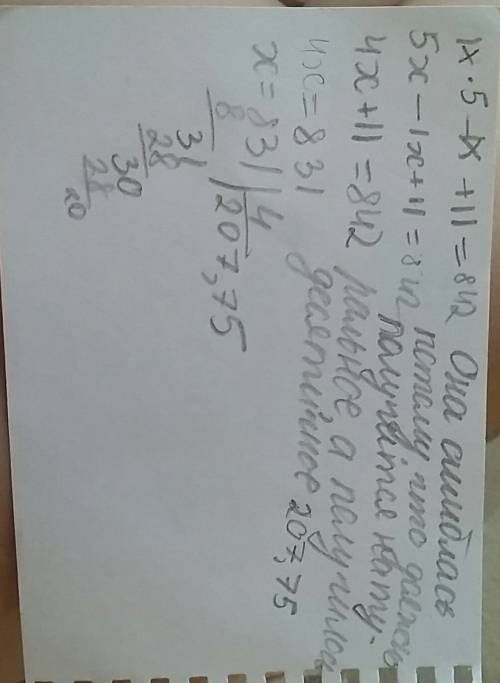 1x·5-1x+11=842 Она ошиблась
5x-1x+11=842 потому, что должно
4x+11=842 получится нату-
4x=831 ральное а получилось
x=831|4 десятичное 207,75
8 207,75
31
28
30
28
20